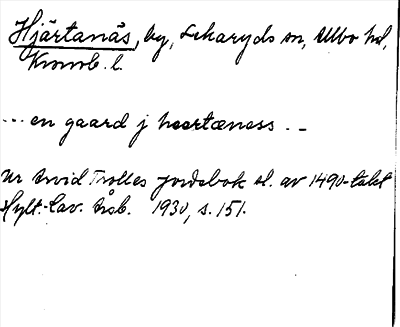 Hjärtanäs, by, Lekaryds sn, Allbo hd,
Kronob. l.
... en gaard j heertæness . _
Ur Arvid Trolles jordebok sl. av 1490-talet
Hylt.-Cav. årsb. 1930, s. 151.